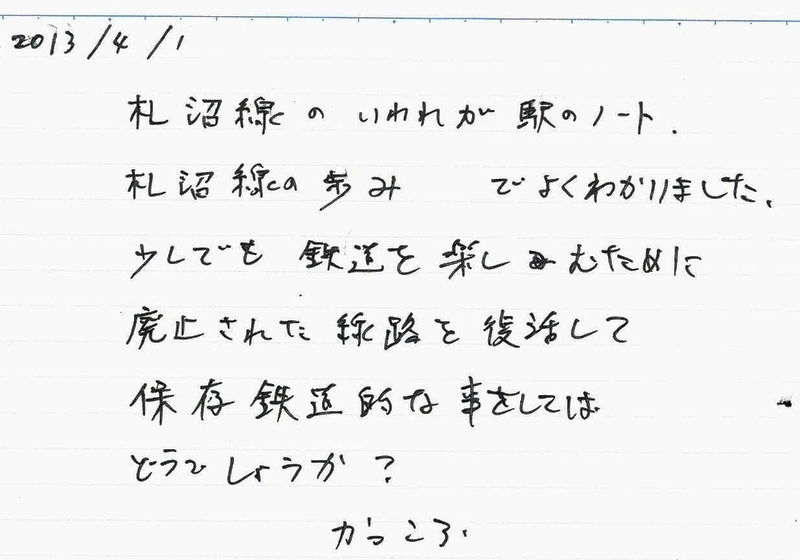 2013/4/1
札沼線のいわれが駅のノート.
札沼線の歩み でよくわかりました.
少しでも鉄道を楽しむために
廃止された線路を復活して
保存鉄道的な事をしては
どうでしょうか?
かっころ.